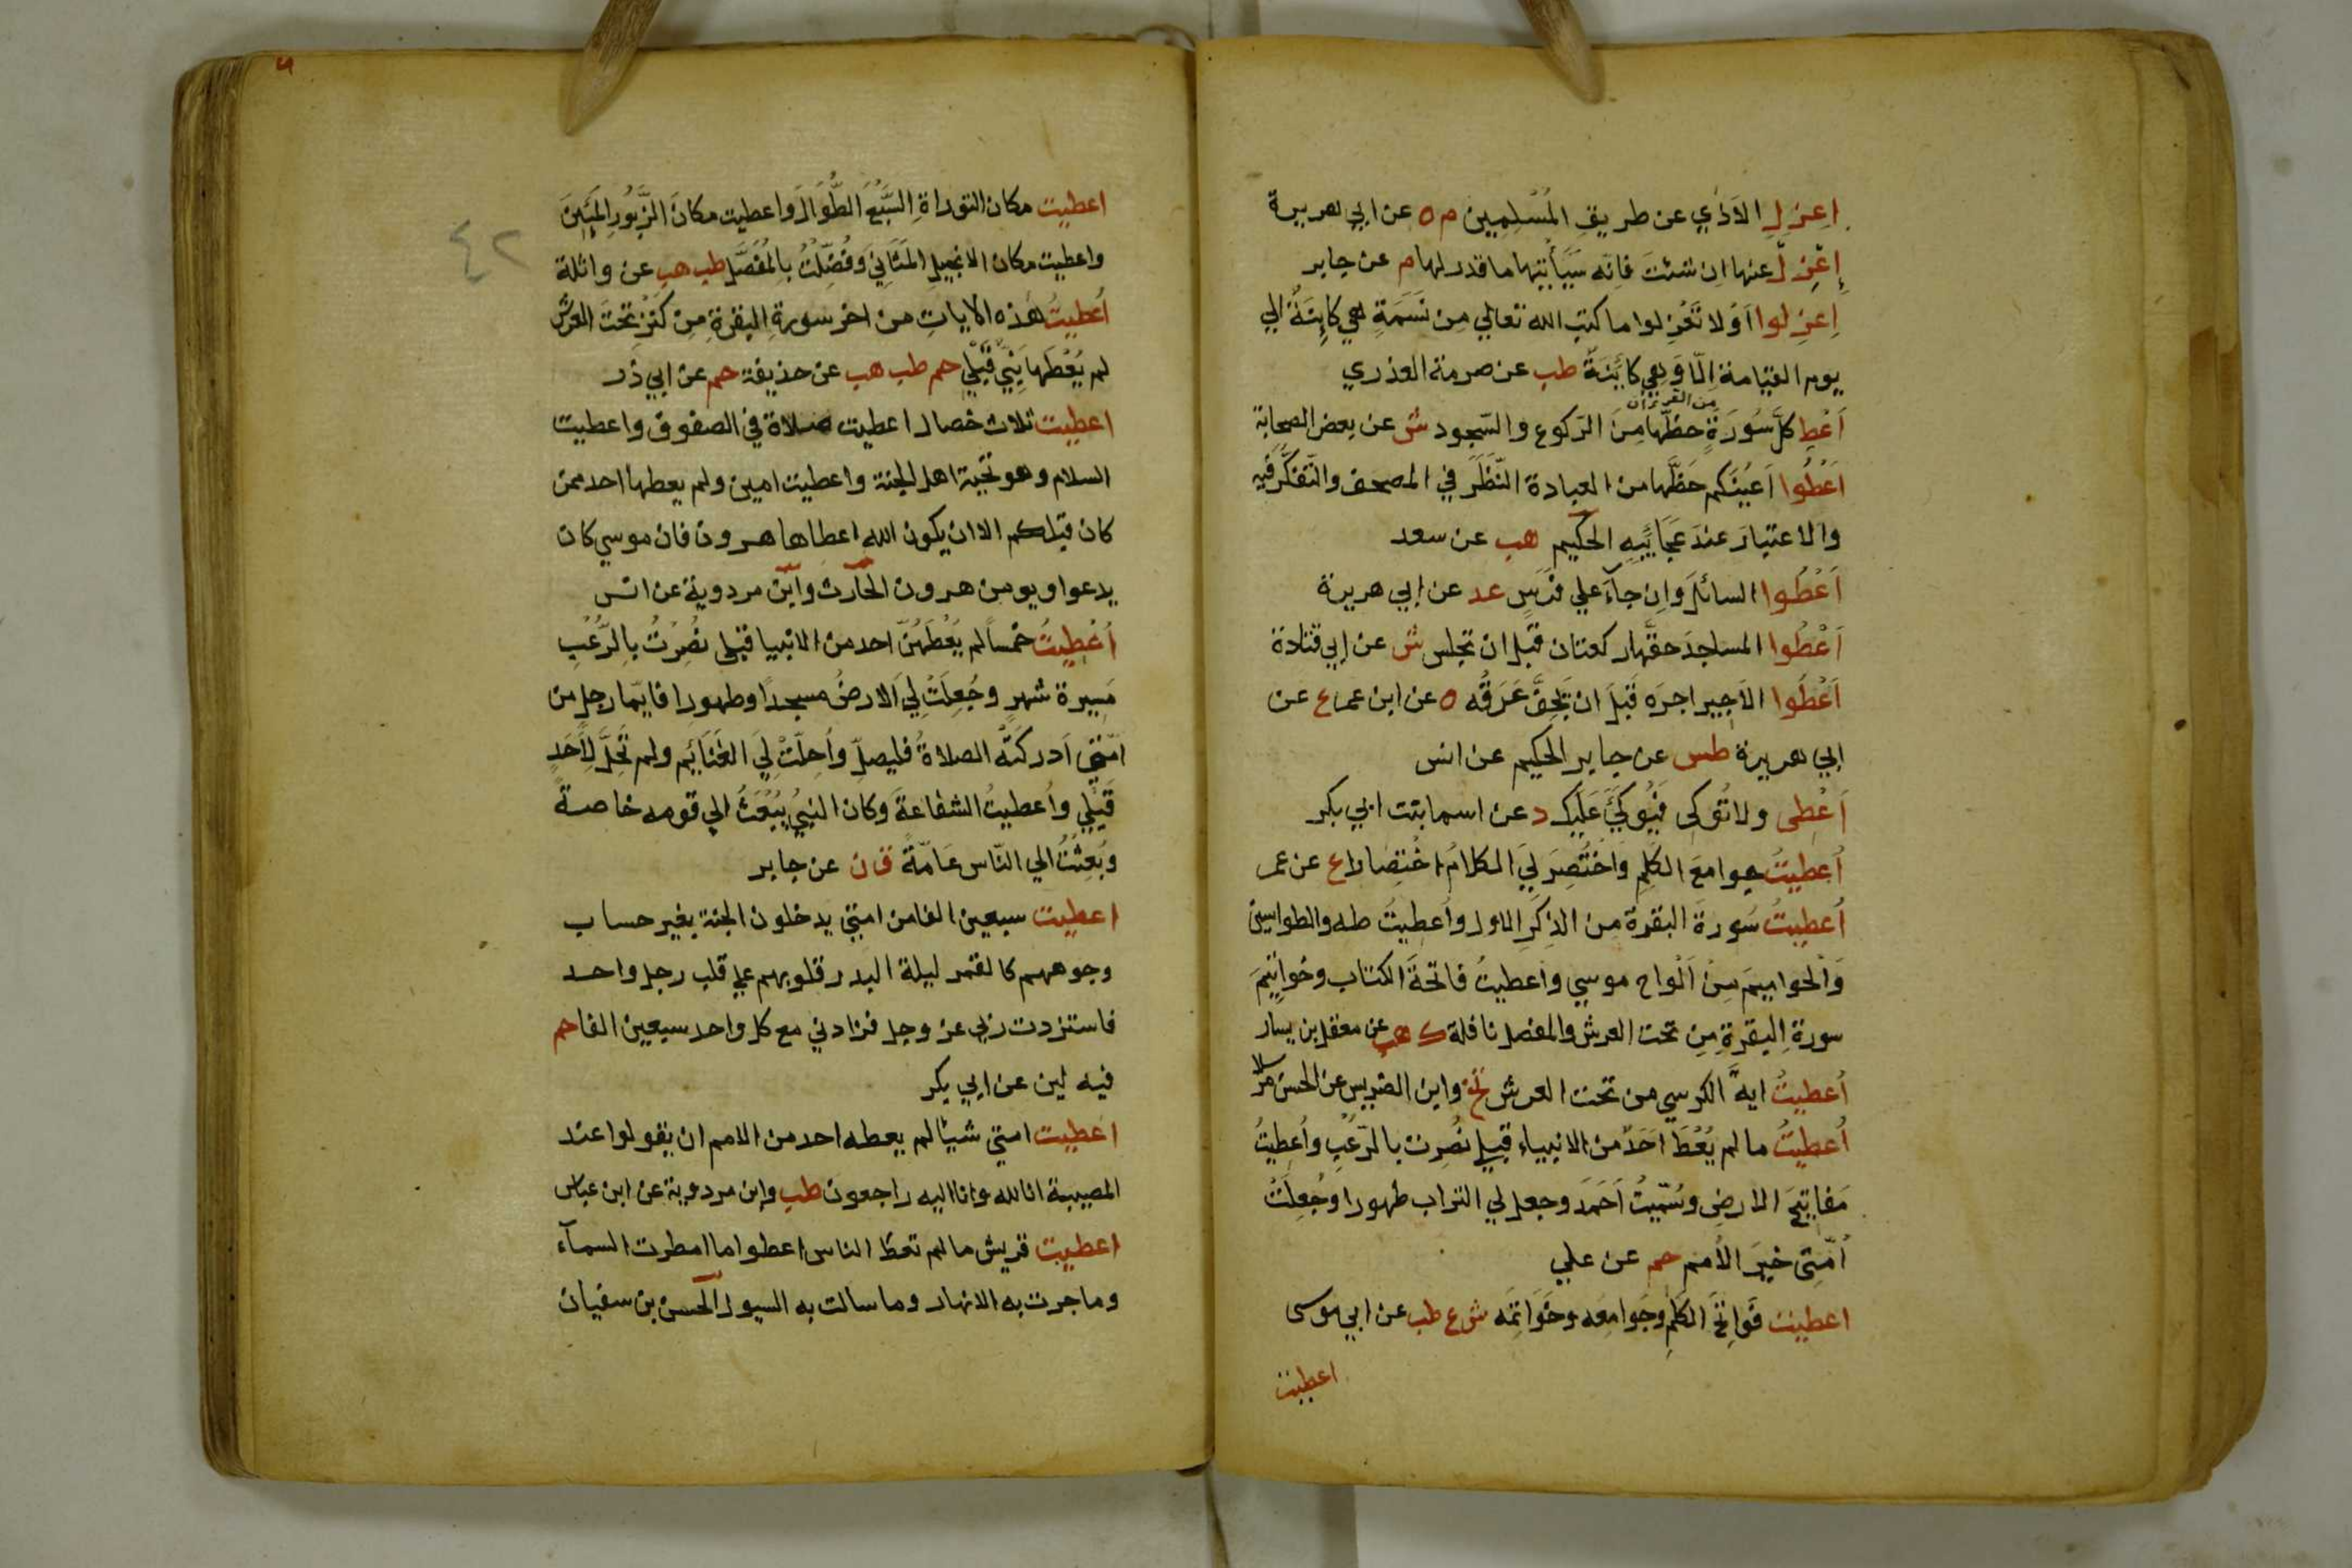 اعزل الاذي عن طريق المسلمين م ه عن ابي هريرة
إعزل عنها ان شئت فانه سيأتيها ما قدر لها م عن جابر
اعزلوا أو لا تعزلوا ما كتب الله تعالي من نسمة هي كاينة الي
يوم القيامة الا وهي كائنة طب عن صرمة العذري
من القرءان
أعط كل سورة حظها من الركوع والسجود ش عن بعض الصحابة
أعطوا أعينكم حظها من العبادة النظر في المصحف والتفكر فيه
والاعتبار عند عجايبه الحكيم هب عن سعد
أعطوا السائل وان جآء علي فرس عد عن ابي هريرة
أعطوا المساجد حقها ركعتان قبل ان تجلس ش عن ابي قتادة
أعطوا الاجير اجره قبل ان يجف عرقه ه عن ابن عمر ع عن
ابي هريرة طس عن جابر الحكيم عن انس
أعطى ولا توكى فيوكئ عليك د عن اسما بنت ابي بكر
أعطيت جوامع الكلم واختصر لي الكلام اختصارا ع عن عمر
أعطيت سورة البقرة من الذكر الاول وأعطيت طه والطواسين
والحواميم من ألواح موسي واعطيت فاتحة الكتاب وخواتيم
سورة البقرة من تحت العرش والمفصل نافلة ك هب عن معقل بن يسار
أعطيت اية الكرسي من تحت العرش تخ وابن الضريس عن الحسن مرسلا
أعطيت ما لم يعط احد من الانبياء قبلي نصرت بالرعب وأعطيت
مفاتيح الارض وسميت أحمد وجعل لي التراب طهورا وجعلت
أمتى خير الأمم حم عن علي
اعطيت فواتح الكلم وجوامعه وخواتمه ش ع طب عن ابي موسى
اعطيت
اعطيت مكان التوراة السبع الطوال واعطيت مكان الزبور المئين
واعطيت مكان الانجيل المثاني وفضلت بالمفصل طب هب عن واثلة
٤٢
أعطيت هذه الايات من اخر سورة البقرة من كنز تحت العرش
لم يعطها نبي قبلي حم طب هب عن حذيفة حم عن ابي ذر
اعطيت ثلاث خصال اعطيت صلاة في الصفوف واعطيت
السلام وهو تحية اهل الجنة واعطيت امين ولم يعطها احد ممن
كان قبلكم الا ان يكون الله اعطاها هرون فان موسي كان
يدعوا ويومن هرون الحارث وابن مردوية عن انس
أعطيت خمسا لم يعطهن احد من الانبيا قبلي نصرت بالرعب
مسيرة شهر وجعلت لي الارض مسجدا وطهورا فايما رجل من
امتي أدركته الصلاة فليصل وأحلت لي الغنائم ولم تحل لأحد
قبلي وأعطيت الشفاعة وكان النبي يبعث الي قومه خاصة
وبعثت الي الناس عامة ق ن عن جابر
اعطيت سبعين الفا من امتي يدخلون الجنة بغير حساب
وجوههم كالقمر ليلة البدر قلوبهم علي قلب رجل واحد
فاستزدت ربي عز وجل فزادني مع كل واحد سبعين الفا حم
فيه لين عن ابي بكر
اعطيت امتي شيئا لم يعطه احد من الامم ان يقولوا عند
المصيبة انا لله وانا اليه راجعون طب وابن مردوية عن ابن عباس
اعطيت قريش ما لم تعط الناس اعطوا ما امطرت السمآء
وما جرت به الانهار وما سالت به السيول الحسن بن سفيان